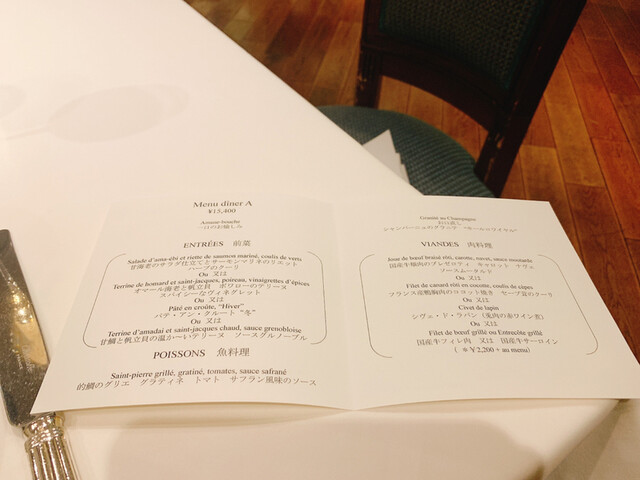 Menu dîner A
¥15,400
Amuse-bouche
一口のお愉しみ
ENTRÉES 前菜
Salade d'ama-ebi et riette de saumon mariné, coulis de verts
甘海老のサラダ仕立てとサーモンマリネのリエット
ハーブのクーリ
Ou 又は
Terrine de homard et saint-jacques, poireau, vinaigrettes d'épices
オマール海老と帆立貝 ポワローのテリーヌ
スパイシーなヴィネグレット
Ou 又は
Pâté en croûte, "Hiver"
パテ・アン・クルート "冬"
Ou 又は
Terrine d'amadai et saint-jacques chaud, sauce grenobloise
甘鯛と帆立貝の温か~いテリーヌ ソースグルノーブル
POISSONS 魚料理
Saint-pierre grillé, gratiné, tomates, sauce safrané
的鯛のグリエ グラティネ トマト サフラン風味のソース
Granité au Champagne
お口直し
シャンパーニュのグラニテ
VIANDES 肉料理
Joue de bœuf braisé rôti, carotte, navet, sauce moutarde
国産牛頬肉のブレゼロティ キャロット ナヴェ
ソースムータルド
Ou 又は
Filet de canard rôti en cocotte, coulis de cèpes
フランス産鴨胸肉のココット焼き セープ茸のクーリ
Ou 又は
Civet de lapin
シヴェ・ド・ラパン (兎肉の赤ワイン煮)
Ou 又は
Filet de bœuf grillé ou Entrecôte grillé
国産牛フィレ肉 又は 国産牛サーロイン
( *¥2,200 + au menu)